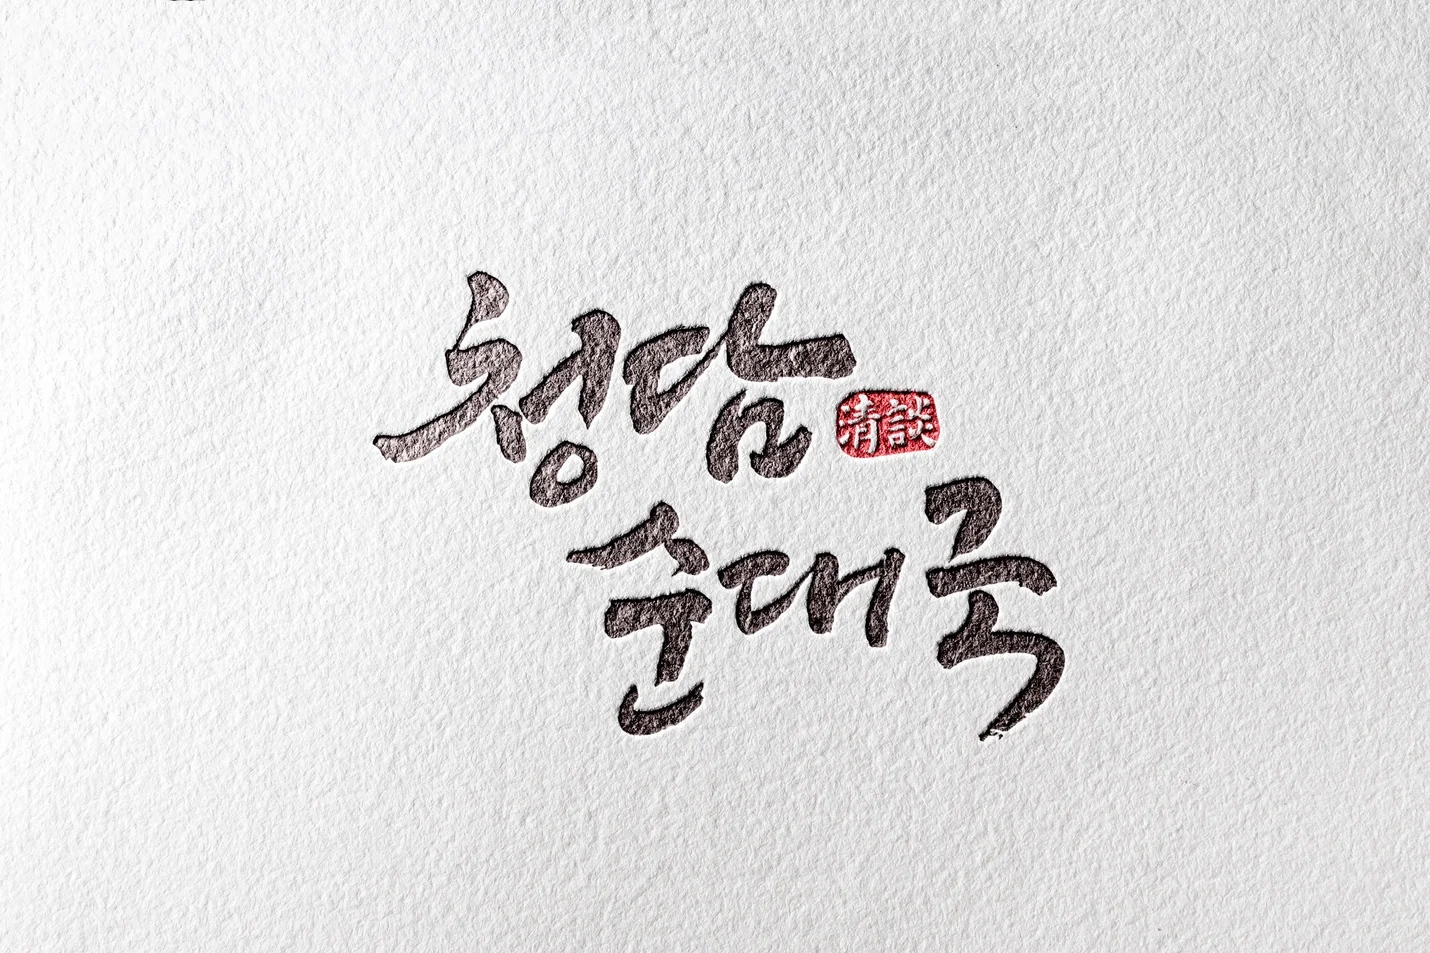 청담
淸談
순대국